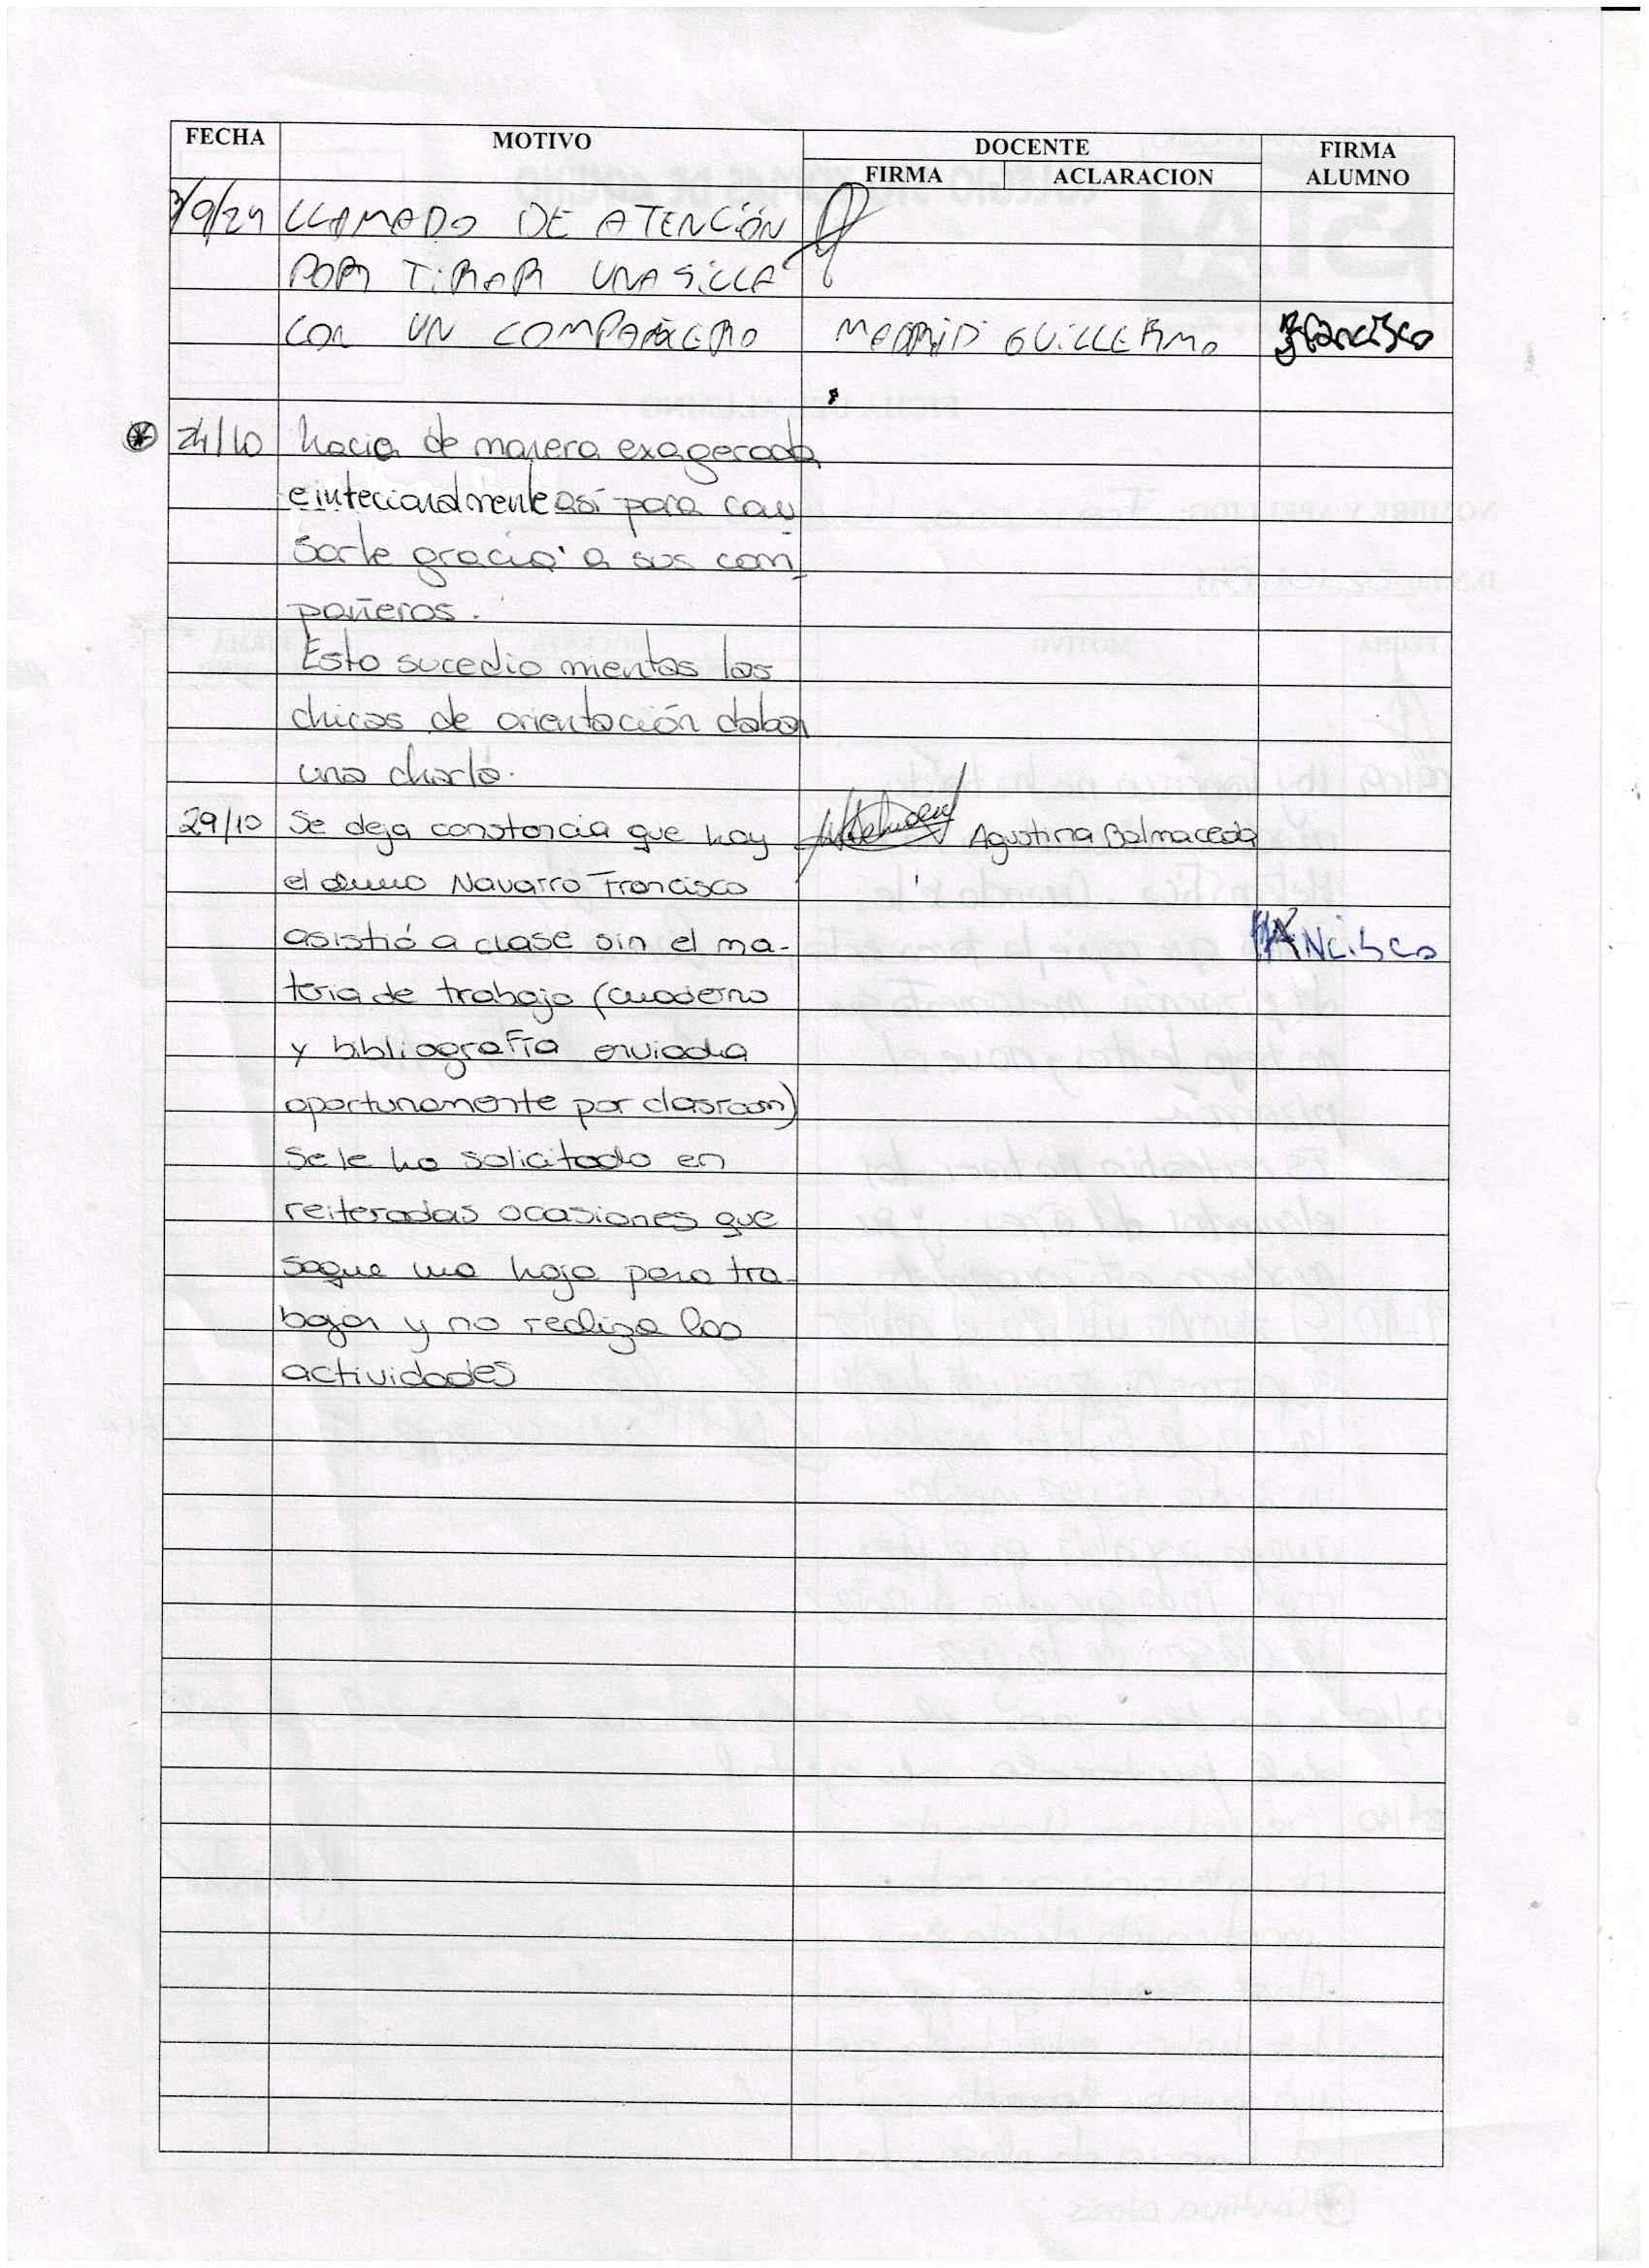 FECHA MOTIVO DOCENTE FIRMA ALUMNO
FIRMA ACLARACION
9/24 LLAMADO DE ATENCIÓN
POR TIRAR UNA SILLA
CON UN COMPAÑERO MADRID GUILLERMO Francisco
24/10 hacia de manera exagerada
e intecionalmente así para cau
sarle gracia a sus com_
pañeros.
Esto sucedio mientas las
chicas de orientación daban
una charla.
29/10 Se deja constancia que hoy Agustina Balmaceda
el alumno Navarro Francisco
asistió a clase sin el ma- FRANCisco
teria de trabajo (cuaderno
y bibliografía enviada
oportunamente por clasroom)
Se le ha solicitado en
reiteradas ocasiones que
saque una hoja para tra-
bajar y no realiza las
actividades